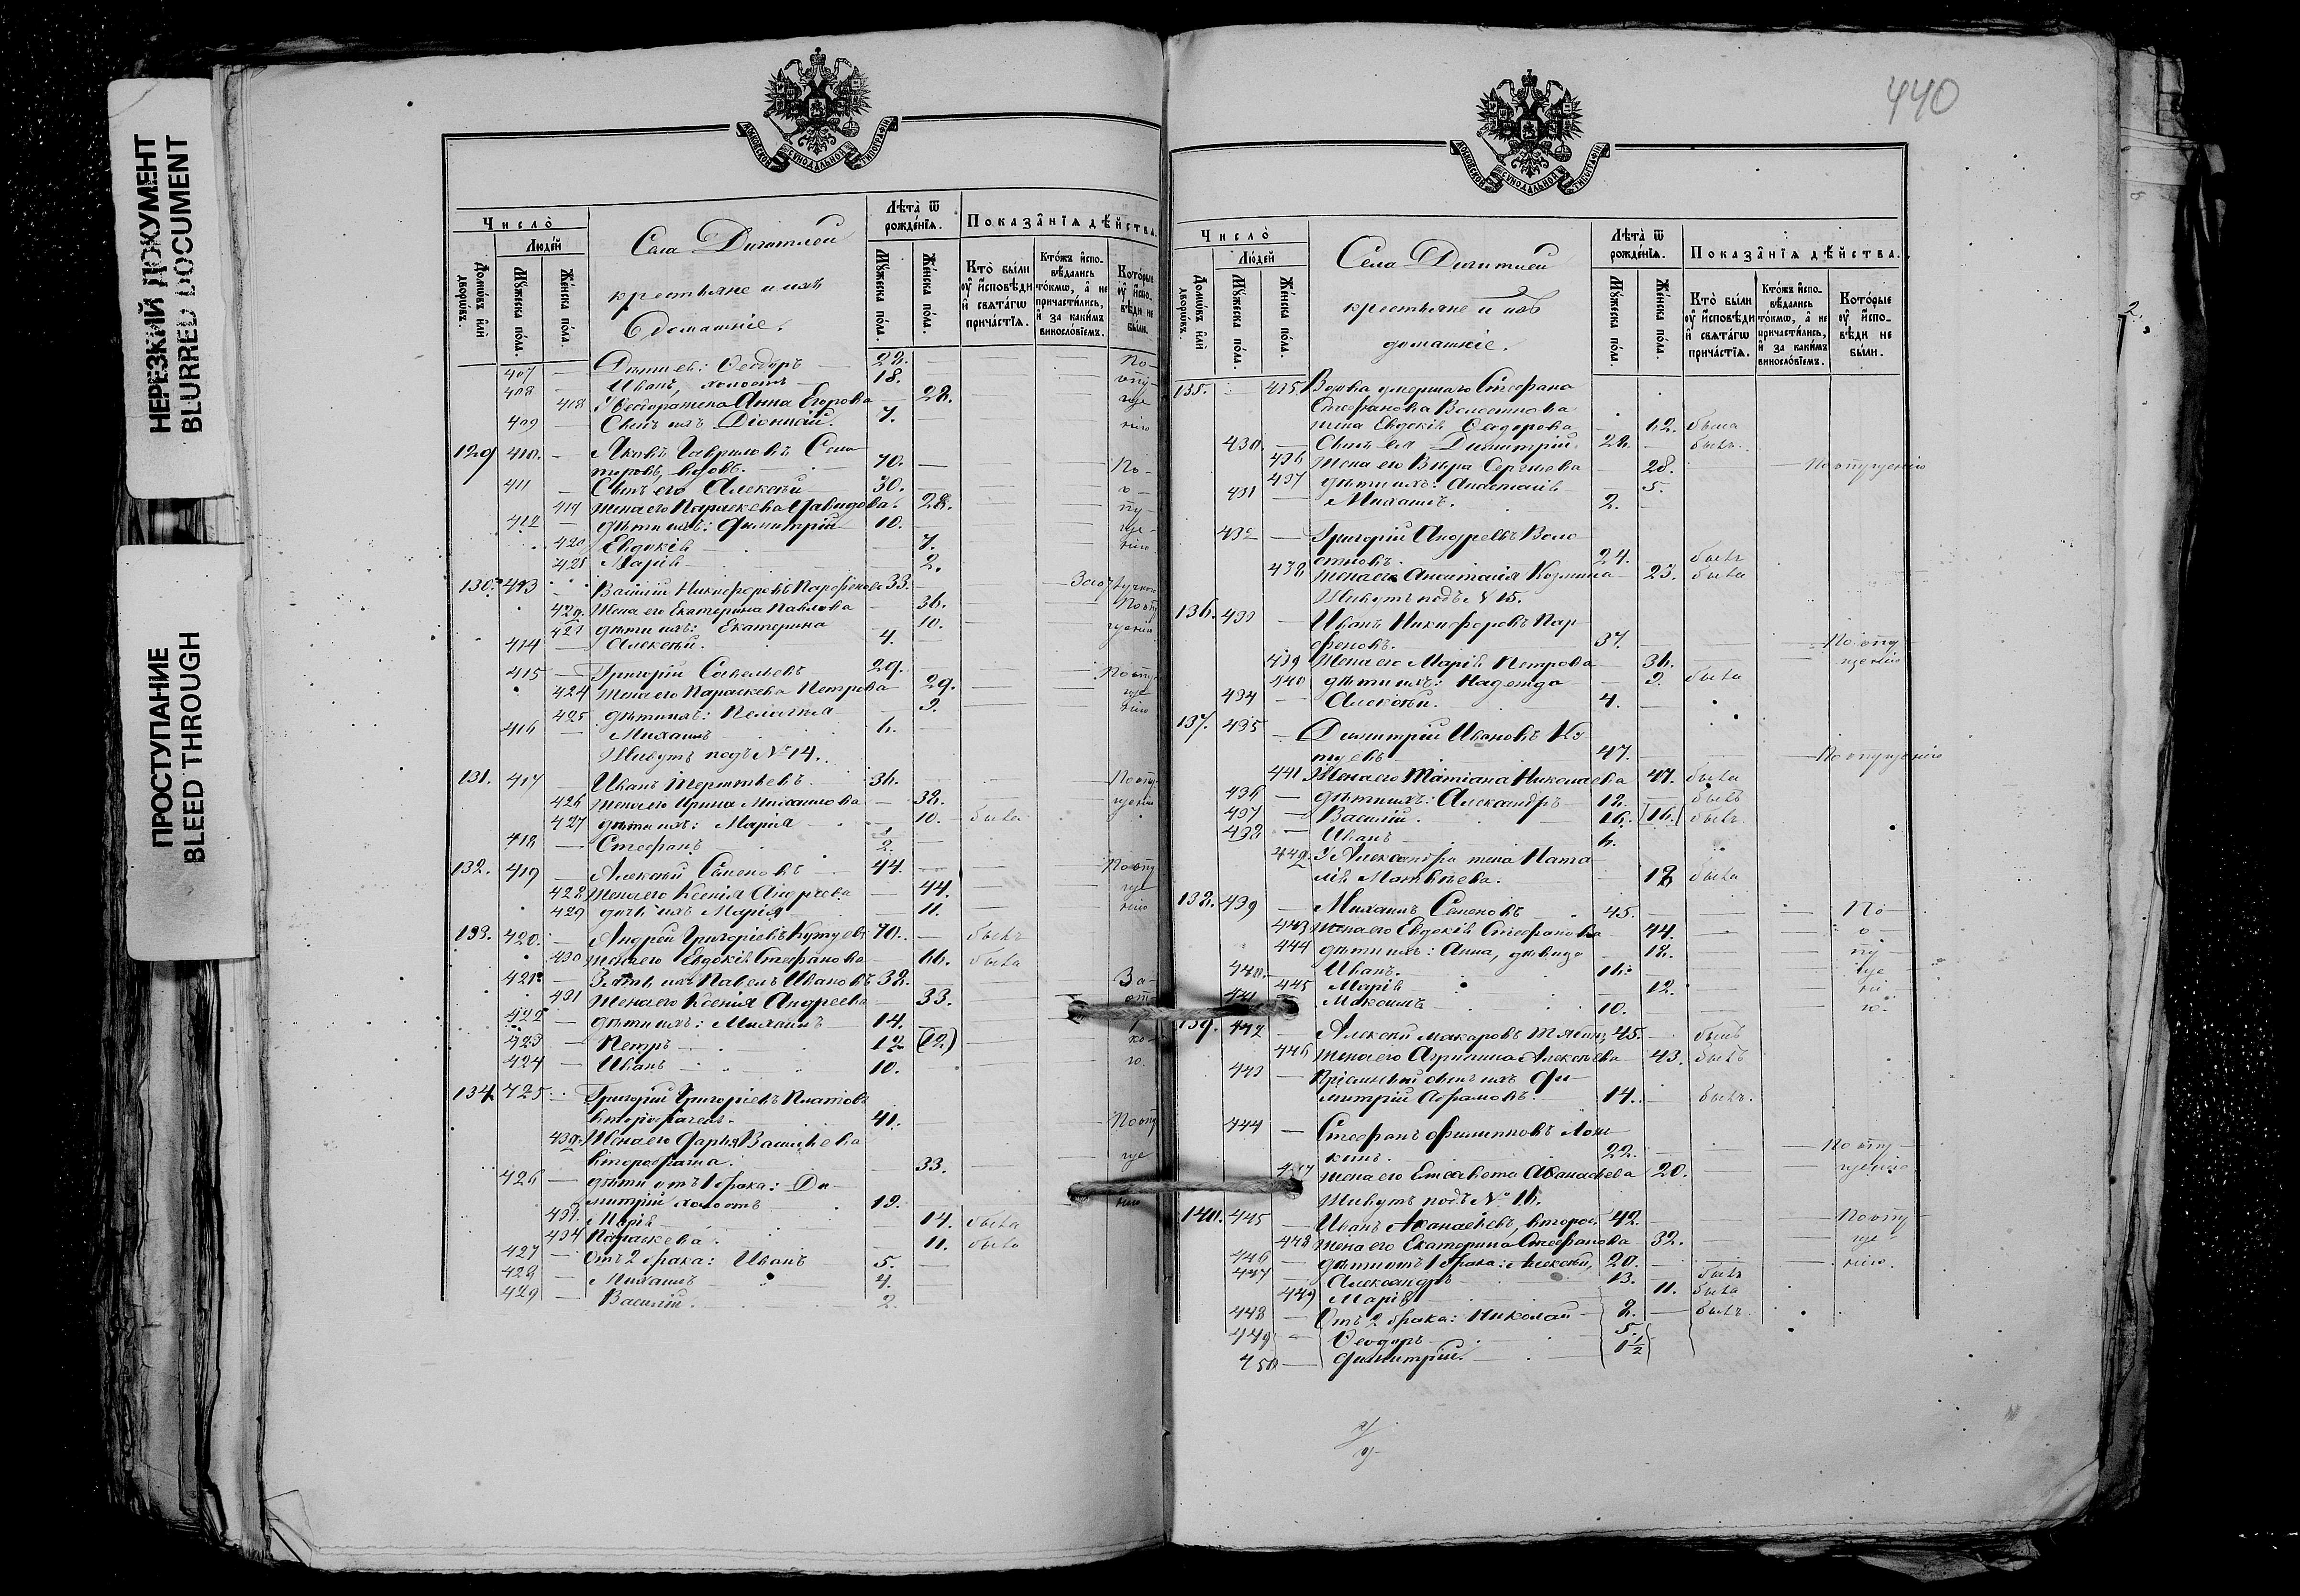 НЕРЕЗКИЙ ДОКУМЕНТ
BLURRED DOCUMENT
ПРОСТУПАНИЕ
BLEED THROUGH
МОСКОВСКОЙ СѴНОДАЛЬНОЙ ТИПОГРАФІИ
Число
Людей
Домовъ или дворовъ.
Мужеска пола.
Женска пола.
Села
крестьяне и ихъ
домашніе.
Лѣта ѿ рожденїя.
Мужеска пола.
Женска пола.
Показанїя дѣйства.
Кто были у исповѣди и свѧтагѡ причастїя.
Ктожъ исповѣдались токмѡ, а не причастились, и за какимъ винословїемъ.
Которые у исповѣди не были.
407 — Ѳеодоръ 28. —
408 — Иванъ, холостъ 18.
418 У Ѳеодора жена Анна Егорова — 28.
409 — Сынъ ихъ Діонисій. 7.
129 410. — Яковъ Гавриловъ
вдовъ. 70. —
411 — Сынъ его Алексѣй 30. —
419 Жена его Параскева Давидова. 28.
412 — дѣти ихъ: Димитрій 10.
420 Евдокія — 7.
Марія — 2.
130. 413 Василій Никифоровъ Парфеновъ 33.
Жена его Екатерина Павлова — 36.
423 дѣти ихъ: Екатерина — 10.
414 — Алексѣй. 4.
415 — Григорій Савельевъ 29.
424 Жена его Параскева Петрова — 29.
425 дѣти ихъ: Пелагія — 9.
416 — Михаилъ 6.
Живутъ подъ № 14.
131. 417 — Иванъ Терентьевъ. 36.
426 Жена его Ирина Михайлова — 38.
427 дѣти ихъ: Марія — 10. была
418 — Стефанъ 2.
132. 419 — Алексѣй Семеновъ 44.
428 Жена его Ксенія Андреева — 44.
429 дочь ихъ Марія — 11.
133. 420. — Андрей Григорьевъ 70. — былъ
430 Жена его Евдокія Стефанова — 66. была
421. — Зять ихъ Павелъ Ивановъ 38.
431 Жена его Ксенія Андреева — 33.
422 — дѣти ихъ: Михаилъ 14.
423 — Петръ 12 (12)
424 — Иванъ 10.
134 425 — Григорій Григорьевъ Платовъ
второбрачен. 41.
Жена его Дарья Васильева
второбрачна. 33.
426 — дѣти отъ 1 брака: Ди-
митрій холостъ 19.
Марія — 14. была
434 Параскева. — 11. была
427 — Отъ 2 брака: Иванъ 5.
428 — Михаилъ 4.
429 — Василій. 2.
440
МОСКОВСКОЙ СѴНОДАЛЬНОЙ ТИПОГРАФІИ
Число
Людей
Домовъ или дворовъ.
Мужеска пола.
Женска пола.
Села
крестьяне и ихъ
домашніе.
Лѣта ѿ рожденїя.
Мужеска пола.
Женска пола.
Показанїя дѣйства.
Кто были у исповѣди и свѧтагѡ причастїя.
Ктожъ исповѣдались токмѡ, а не причастились, и за какимъ винословїемъ.
Которые у исповѣди не были.
135. 435 Вдова умершаго Стефана
Стефанова
жена Евдокія Ѳеодорова — 62. была
430. — Сынъ ея Димитрій 28. — былъ.
436 Жена его Вѣра Сергѣева — 28. — По опущенію
437 дѣти ихъ: Анастасія — 5.
431 — Михаилъ. 2.
432 — Григорій Андреевъ
24. былъ
438 жена его Анастасія Козмина — 23. была
Живутъ подъ № 15.
136. 433 — Иванъ Никифоровъ Пар-
феновъ. 37. — По опу-
439 Жена его Марія Петрова — 36. щенію
440 дѣти ихъ: Надежда — 9. была
434 — Алексѣй. 4.
137. 435 — Димитрій Ивановъ
47. — По опущенію
441 Жена его Татіана Николаева 47. была
436 — дѣти ихъ: Александръ 18. былъ
437 — Василій. 16. (16.) былъ
438 — Иванъ 6.
У Александра жена Ната-
лія Матвѣева. 18 была
138. 439 — Михаилъ Семеновъ 45. — По-
443 Жена его Евдокія Стефанова 44. — о-
444 дѣти ихъ: Анна, дѣвица — 18. — пу-
440. — Иванъ. 16. ще-
445 Марія 12. ні-
441 Максимъ 10. ю.
139. 442 — Алексѣй Макаровъ 45. — былъ
446 Жена его Агрипина Алексѣева — 43. была
443 — Пріемный сынъ ихъ Ди-
митрій Абрамовъ. 14. — былъ.
444 — Стефанъ Филипповъ
22. — По опу-
жена его Елисавета Аѳанасьева 20. — щенію
Живутъ подъ № 16.
140. 445 — Иванъ Аѳанасьевъ, второб. 42. — По опу-
448 Жена его Екатерина Стефанова 32. — ще-
446 — дѣти отъ 1 брака: Алексѣй, 20. — нію.
447 — Александръ 13. былъ
449 Марія 11. была
448 — Отъ 2 брака: Николай 8. — былъ.
449 — Ѳеодоръ 5.
450 — Димитрій. 1½